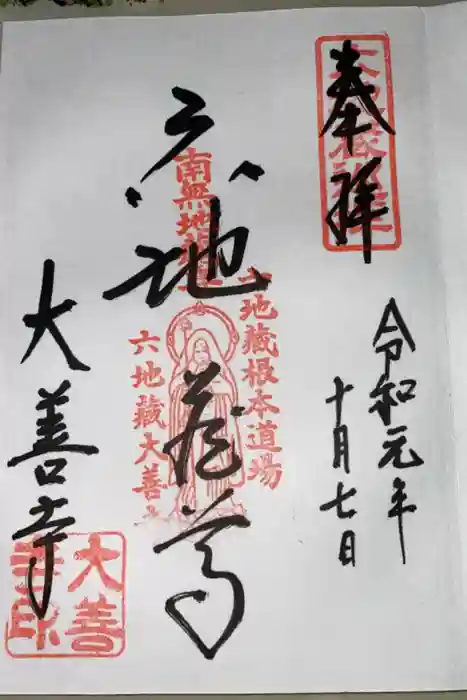 奉拝
令和元年
十月七日
六地蔵尊
南無地蔵尊
六地蔵根本道場
六地蔵大善寺
大善寺
大善寺印